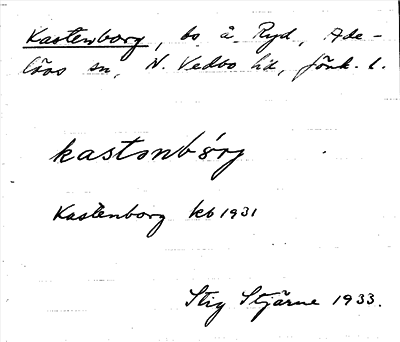 Kastenborg, bs å Ryd, Ade-
lövs sn, N. Vedbo hd, Jönk. l.
kastənbórj
Kastenborg kb 1931
Stig Stjärne 1933.